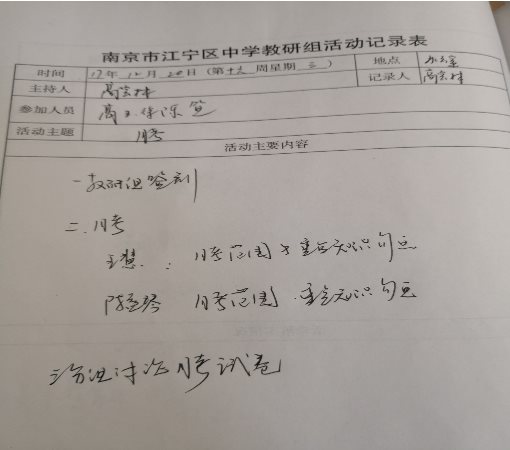 南京市江宁区中学教研组活动记录表
时间 17年12月20日(第十六周星期三) 地点 办公室
主持人 记录人
参加人员
活动主题 月考
活动主要内容
一.教研组签到
二.月考
王慧: 月考范围及重点知识句点
月考范围.重点知识句点
三分组讨论月考试卷